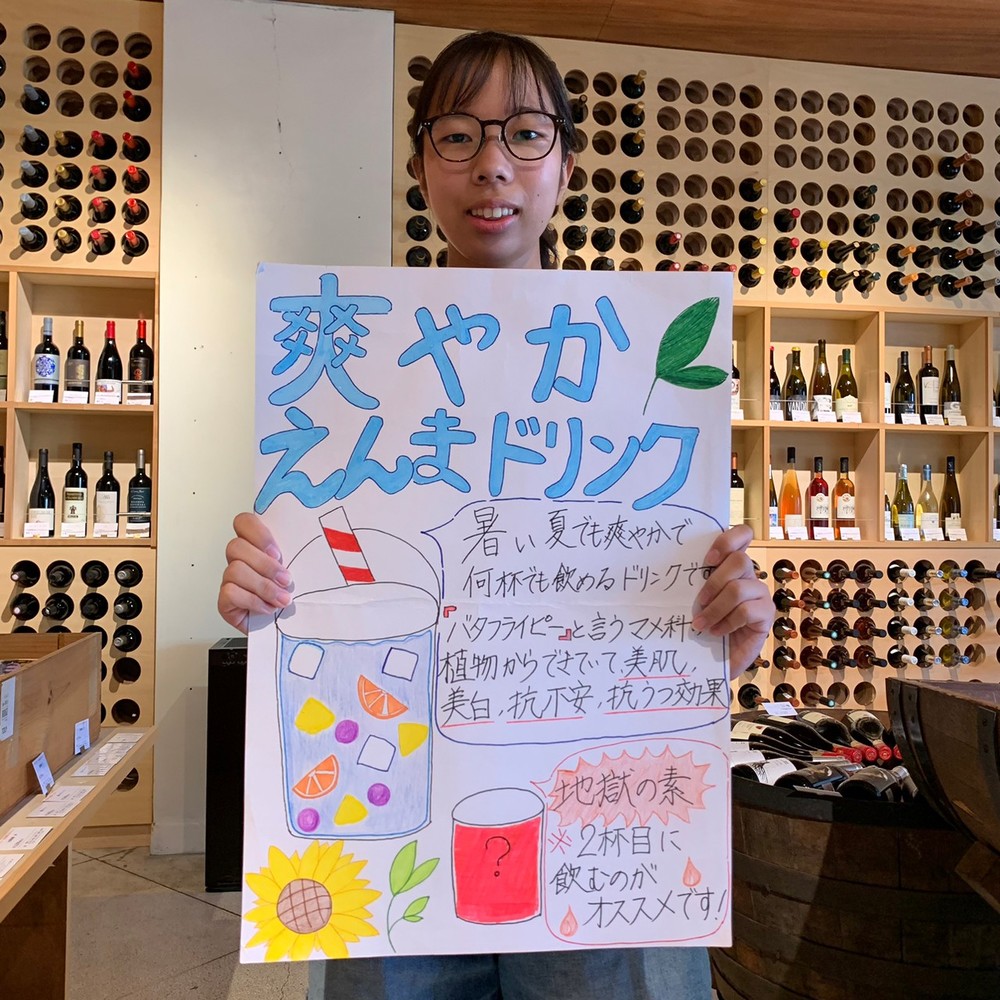 爽やか
えんまドリンク
暑い夏でも爽やかで
何杯でも飲めるドリンクです
『バタフライピー』と言うマメ科
植物からできていて、美肌、
美白、抗不安、抗うつ効果
地獄の素
※2杯目に
飲むのが
オススメです!
?